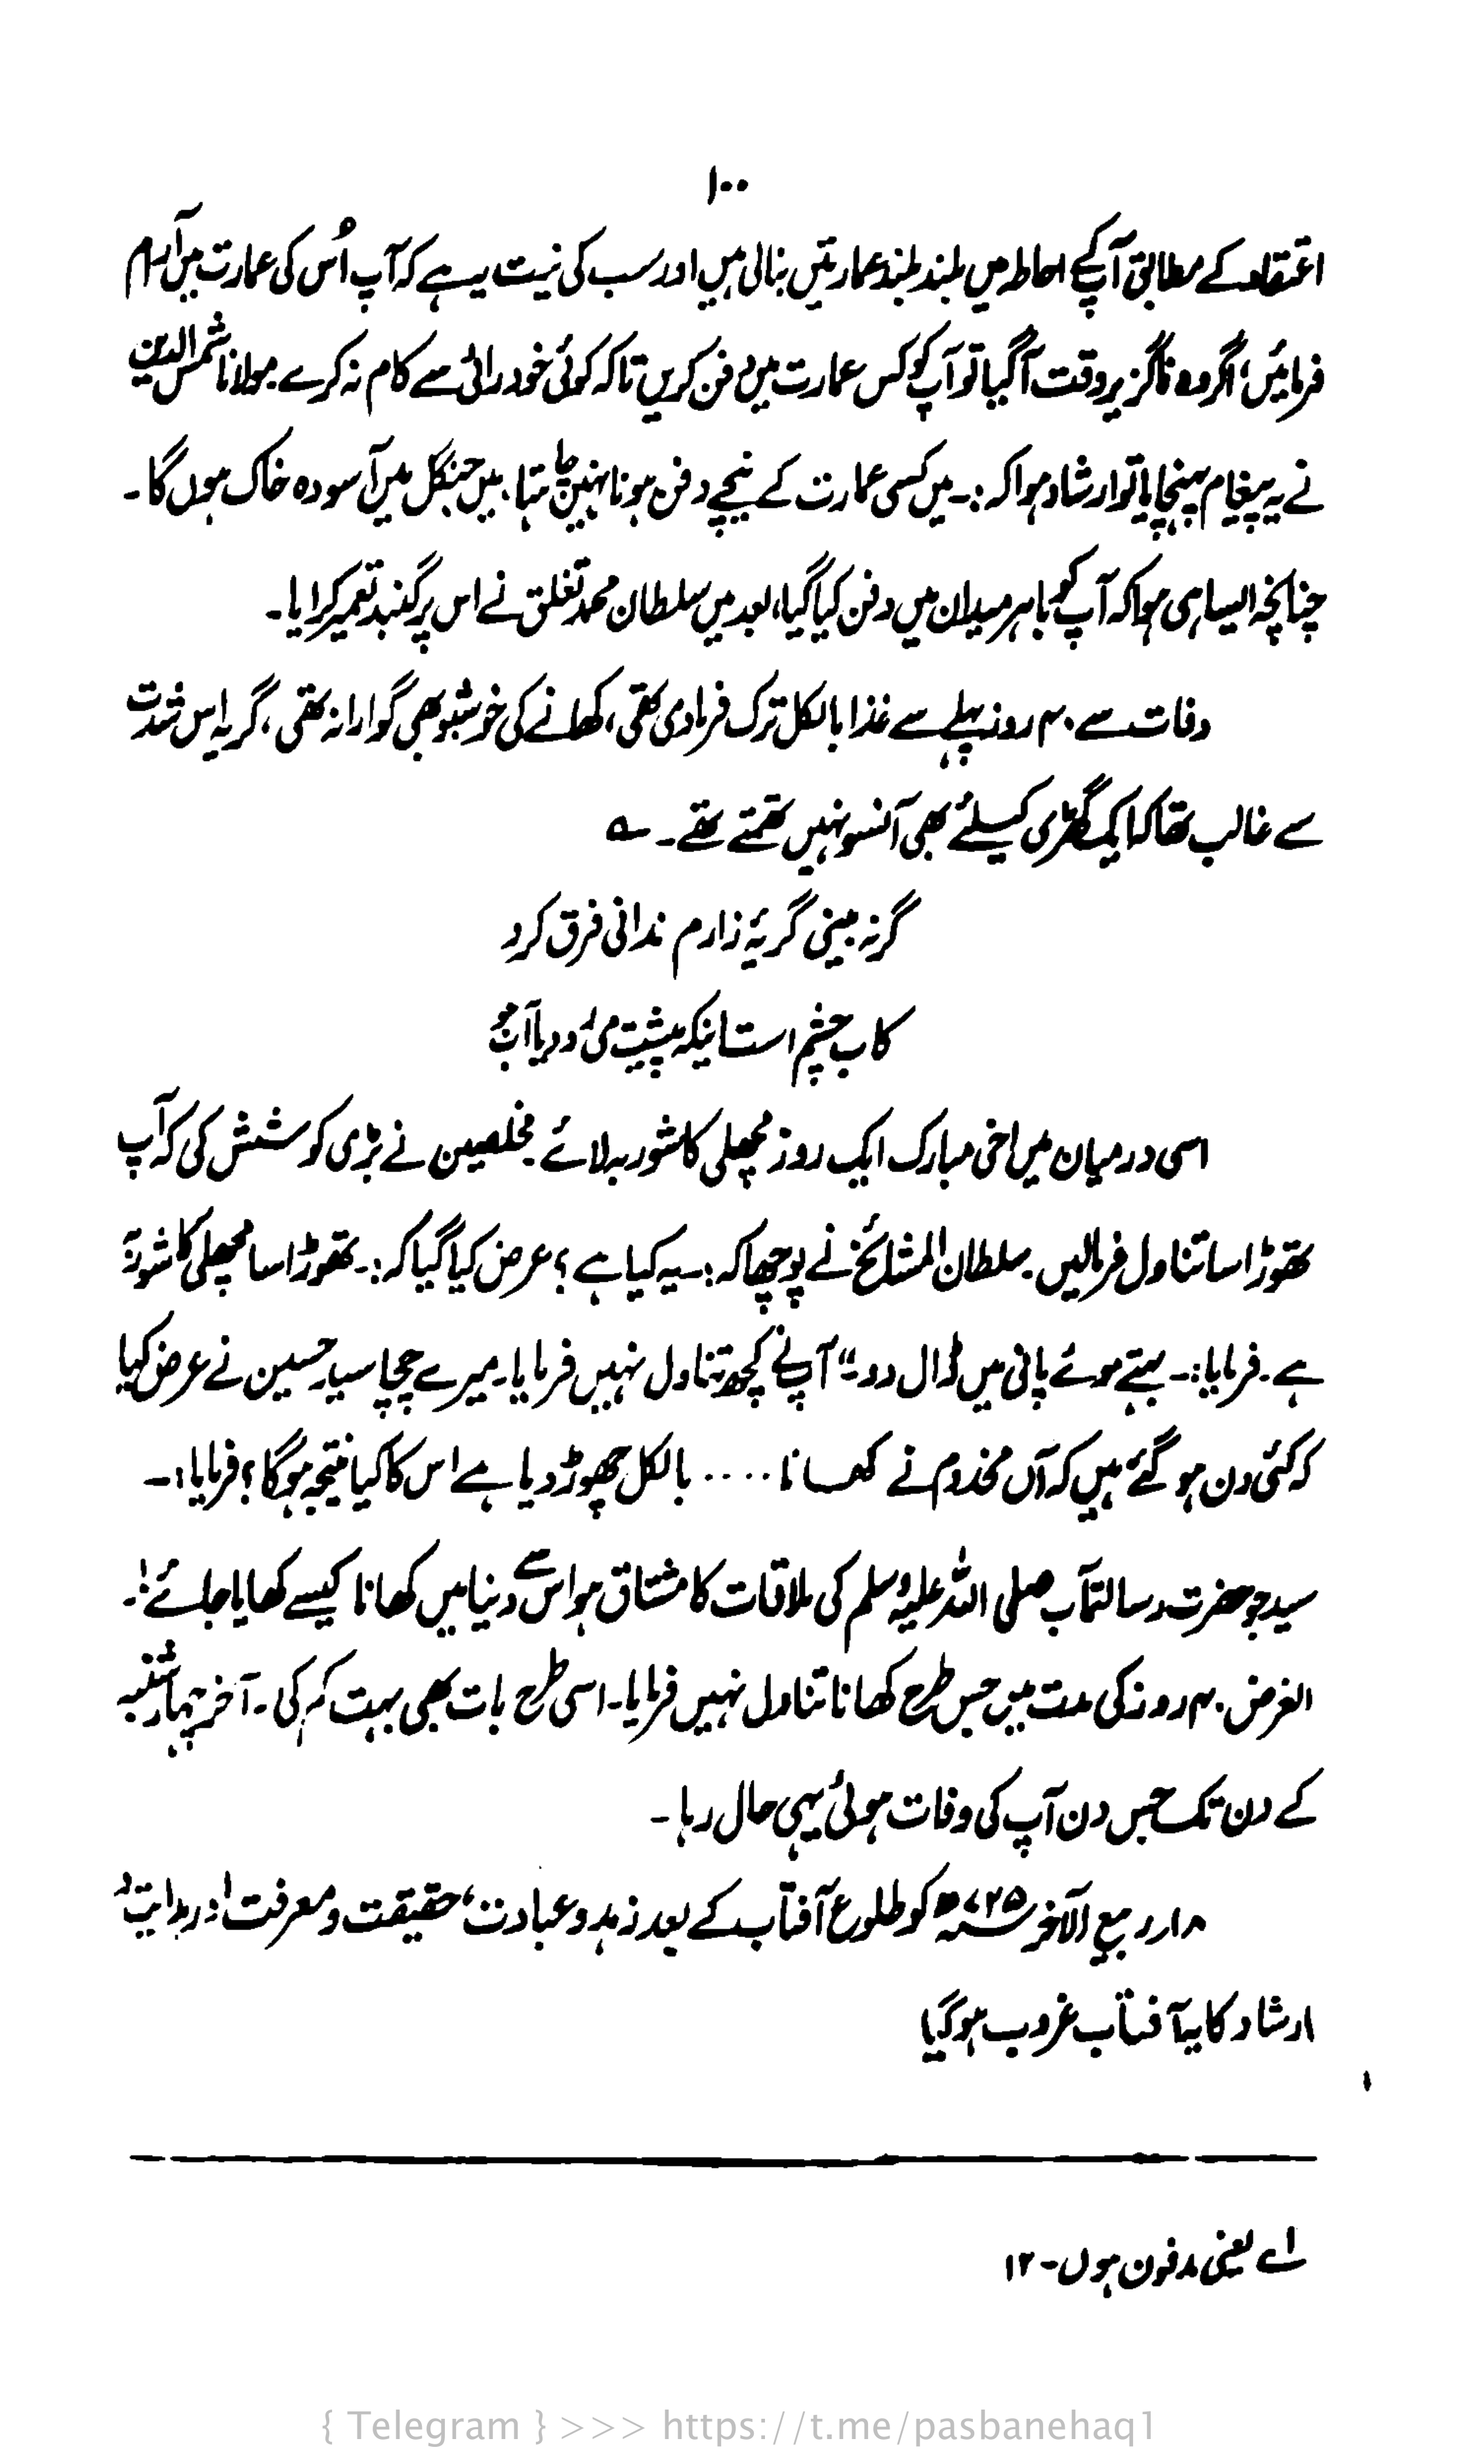 ۱۰۰
اعتقاد کے مطابق آپ کے احاطہ میں بلند بلند عمارتیں بنالی ہیں اور سب کی نیت یہ ہے کہ آپ اُس کی عمارت میں آرام
فرمائیں، اگر وہ ناگزیر وقت آگیا تو آپ کو کس عمارت میں دفن کریں تاکہ کوئی خود رائی سے کام نہ کرے۔ مولانا شمس الدین
نے یہ پیغام پہنچایا تو ارشاد ہوا کہ :۔ میں کسی عمارت کے نیچے دفن ہونا نہیں چاہتا، میں جنگل میں آسودہ خاک ہوں گا۔
چنانچہ ایسا ہی ہوا کہ آپ کو باہر میدان میں دفن کیا گیا، بعد میں سلطان محمد تغلق نے اس پر گنبد تعمیر کرایا۔
وفات سے ۴۰ روز پہلے سے غذا بالکل ترک فرمادی تھی، کھانے کی خوشبو بھی گوارا نہ تھی، گریہ اس شدت
سے غالب تھا کہ ایک گھڑی کیلئے بھی آنسو نہیں تھمتے تھے۔ ؎
گر نہ بینی گریۂ زارم ندانی فرق کرد
کاب چشم است اینکہ پیشت می رود یا آب جو
اسی درمیان میں اخی مبارک ایک روز مچھلی کا شوربہ لائے۔ مخلصین نے بڑی کوشش کی کہ آپ
تھوڑا سا تناول فرمالیں۔ سلطان المشائخ نے پوچھا کہ :۔ یہ کیا ہے؟ عرض کیا گیا کہ :۔ تھوڑا سا مچھلی کا شوربہ
ہے۔ فرمایا :۔ بہتے ہوئے پانی میں ڈال دو۔" آپ نے کچھ تناول نہیں فرمایا۔ میرے چچا سید حسین نے عرض کیا
کہ کئی دن ہو گئے ہیں کہ آں مخدوم نے کھانا ..... بالکل چھوڑ دیا ہے اس کا کیا نتیجہ ہوگا؟ فرمایا :۔
سید جو حضرت رسالتمآب صلی اللہ علیہ وسلم کی ملاقات کا مشتاق ہو اس سے دنیا میں کھانا کیسے کھایا جائے!۔
الغرض ۴۰ روز کی مدت میں جس طرح کھانا تناول نہیں فرمایا۔ اسی طرح بات بھی بہت کم کی۔ آخر چہارشنبہ
کے دن تک جس دن آپ کی وفات ہوئی یہی حال رہا۔
۱۸؍ ربیع الآخر ۷۲۵ھ کو طلوع آفتاب کے بعد زہد و عبادت، حقیقت و معرفت اور ہدایت و
ارشاد کا یہ آفتاب غروب ہو گیا
۱ے یعنی مدفون ہوں۔ ۱۲
{ Telegram } >>> https://t.me/pasbanehaq1